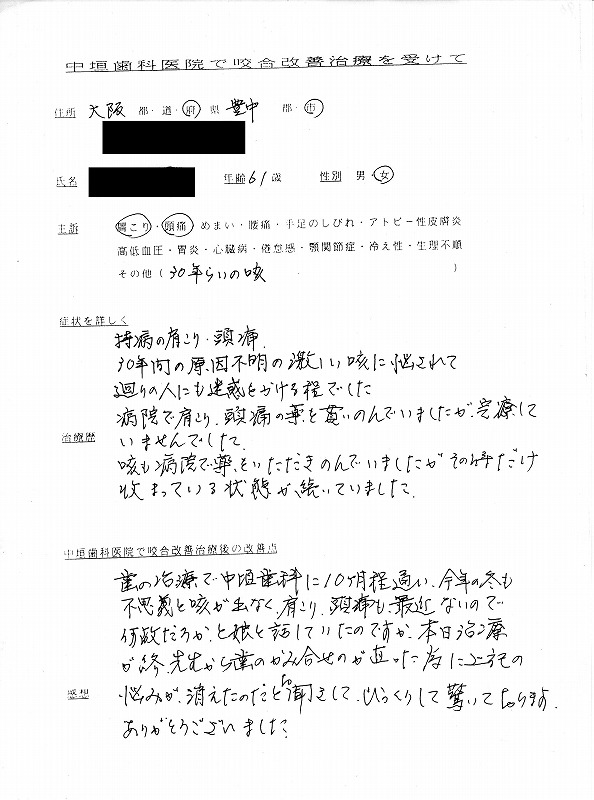 中垣歯科医院で咬合改善治療を受けて
住所 大阪 都・道・府 県 豊中 郡・市
氏名 年齢 61 歳 性別 男・女
主訴 肩こり・頭痛 めまい・腰痛・手足のしびれ・アトピー性皮膚炎
高低血圧・胃炎・心臓病・倦怠感・顎関節症・冷え性・生理不順
その他（30年らいの咳）
症状を詳しく
持病の肩こり・頭痛
30年間の原因不明の激しい咳に悩されて
廻りの人にも迷惑とかける程でした
病院で肩こり、頭痛の薬を貰いのんでいましたが、完療して
治療歴 いませんでした。
咳も病院で薬をいただきのんでいましたがその時だけ
収まっている状態が続いていました。
中垣歯科医院で咬合改善治療後の改善点
歯の治療で中垣歯科に10ヶ月程通い、今年の冬も
不思義と咳が出なく、肩こり、頭痛も、最近ないので
何故だろうか、と娘と話していたのですが、本日治療
が終、先生から歯のかみ合せのが直った為に上記の
感想 悩みが、消えたのだとお聞きして、びっくりして驚いております。
ありがとうございました。